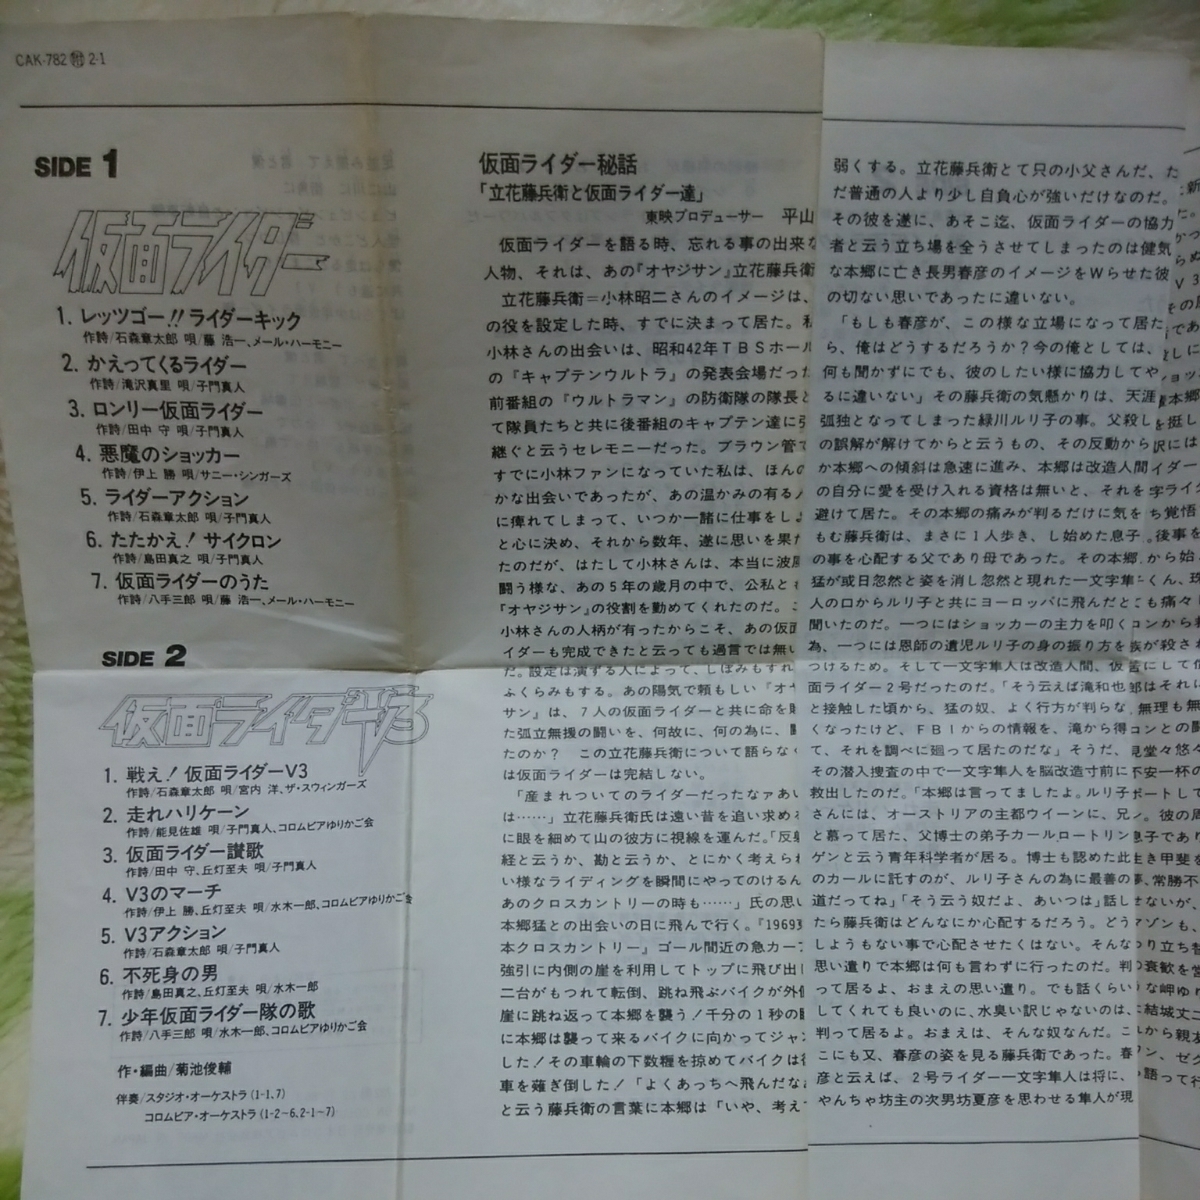 CAK-782 附 2-1
SIDE 1
仮面ライダー
1. レッツゴー!! ライダーキック
作詩/石森章太郎 唄/藤 浩一、メール・ハーモニー
2. かえってくるライダー
作詩/滝沢真里 唄/子門真人
3. ロンリー仮面ライダー
作詩/田中 守 唄/子門真人
4. 悪魔のショッカー
作詩/伊上 勝 唄/サニー・シンガーズ
5. ライダーアクション
作詩/石森章太郎 唄/子門真人
6. たたかえ! サイクロン
作詩/島田真之 唄/子門真人
7. 仮面ライダーのうた
作詩/八手三郎 唄/藤 浩一、メール・ハーモニー
SIDE 2
仮面ライダーV3
1. 戦え! 仮面ライダーV3
作詩/石森章太郎 唄/宮内 洋、ザ・スウィンガーズ
2. 走れハリケーン
作詩/能見佐雄 唄/子門真人、コロムビアゆりかご会
3. 仮面ライダー讃歌
作詩/田中 守、丘灯至夫 唄/子門真人
4. V3のマーチ
作詩/伊上 勝、丘灯至夫 唄/水木一郎、コロムビアゆりかご会
5. V3アクション
作詩/石森章太郎 唄/子門真人
6. 不死身の男
作詩/島田真之、丘灯至夫 唄/水木一郎
7. 少年仮面ライダー隊の歌
作詩/八手三郎 唄/水木一郎、コロムビアゆりかご会
作・編曲/菊池俊輔
伴奏/スタジオ・オーケストラ (1-1.7)
コロムビア・オーケストラ (1-2~6.2-1~7)
仮面ライダー秘話
「立花藤兵衛と仮面ライダー達」
東映プロデューサー 平山
仮面ライダーを語る時、忘れる事の出来な
人物、それは、あの『オヤジサン』立花藤兵衛
立花藤兵衛=小林昭二さんのイメージは、
の役を設定した時、すでに決まって居た。私
小林さんの出会いは、昭和42年TBSホール
の『キャプテンウルトラ』の発表会場だった
前番組の『ウルトラマン』の防衛隊の隊長と
て隊員たちと共に後番組のキャプテン達に引
継ぐと云うセレモニーだった。ブラウン管で
すでに小林ファンになっていた私は、ほんの
かな出会いであったが、あの温かみの有る人
に痺れてしまって、いつか一諸に仕事をしよ
と心に決め、それから数年、遂に思いを果た
たのだが、はたして小林さんは、本当に波風
闘う様な、あの5年の歳月の中で、公私とも
『オヤジサン』の役割を勤めてくれたのだ。こ
小林さんの人柄が有ったからこそ、あの仮面
イダーも完成できたと云っても過言では無い
だ。設定は演ずる人によって、しぼみもすれ
ふくらみもする。あの陽気で頼もしい『オヤ
サン』は、7人の仮面ライダーと共に命を賭
た孤立無援の闘いを、何故に、何の為に、闘
たのか? この立花藤兵衛について語らなく
は仮面ライダーは完結しない。
「産まれついてのライダーだったなァあい
は……」立花藤兵衛氏は遠い昔を追い求める
に眼を細めて山の彼方に視線を運んだ。「反射
経と云うか、勘と云うか、とにかく考えられ
い様なライディングを瞬間にやってのけるん
あのクロスカントリーの時も……」氏の思い
本郷猛との出会いの日に飛んで行く。『1969東
本クロスカントリー』ゴール間近の急カーブ
強引に内側の崖を利用してトップに飛び出し
二台がもつれて転倒、跳ね飛ぶバイクが外側
崖に跳ね返って本郷を襲う!千分の1秒の瞬
に本郷は襲って来るバイクに向かってジャン
した!その車輪の下数糎を掠めてバイクは後
車を薙ぎ倒した!「よくあっちへ飛んだなぁ
と云う藤兵衛の言葉に本郷は「いや、考え
弱くする。立花藤兵衛とて只の小父さんだ、た
だ普通の人より少し自負心が強いだけなのだ。
その彼を遂に、あそこ迄、仮面ライダーの協力
者と云う立ち場を全うさせてしまったのは健気
な本郷に亡き長男春彦のイメージをWらせた彼
の切ない思いであったに違いない。
「もしも春彦が、この様な立場になって居た
ら、俺はどうするだろうか?今の俺としては、
何も聞かずにでも、彼のしたい様に協力してや
るに違いない」その藤兵衛の気懸かりは、天涯
孤独となってしまった緑川ルリ子の事。父殺し
の誤解が解けてからと云うもの、その反動から
か本郷への傾斜は急速に進み、本郷は改造人間
の自分に愛を受け入れる資格は無いと、それを
避けて居た。その本郷の痛みが判るだけに気を
もむ藤兵衛は、まさに1人歩き、し始めた息子
の事を心配する父であり母であった。その本郷
猛が或日忽然と姿を消し忽然と現れた一文字隼
人の口からルリ子と共にヨーロッパに飛んだと
聞いたのだ。一つにはショッカーの主力を叩く
為、一つには恩師の遺児ルリ子の身の振り方を
つけるため。そして一文字隼人は改造人間、仮
面ライダー2号だったのだ。「そう云えば滝和也
と接触した頃から、猛の奴、よく行方が判らな
くなったけど、FBIからの情報を、滝から得
て、それを調べに廻って居たのだな」そうだ、
その潜入捜査の中で一文字隼人を脳改造寸前に
救出したのだ。「本郷は言ってましたよ。ルリ子
さんには、オーストリアの主都ウイーンに、兄
と慕って居た、父博士の弟子カールロートリン
ゲンと云う青年科学者が居る。博士も認めた此
のカールに託すのが、ルリ子さんの為に最善の
道だってね」「そう云う奴だよ、あいつは」話し
たら藤兵衛はどんなにか心配するだろう。どう
しようもない事で心配させたくはない。そんな
思い遣りで本郷は何も言わずに行ったのだ。判
って居るよ、おまえの思い遣り。でも話くらい
してくれても良いのに、水臭い訳じゃないのは、
判って居るよ。おまえは、そんな奴なんだ。こ
こにも又、春彦の姿を見る藤兵衛であった。春
彦と云えば、2号ライダー一文字隼人は将に、
やんちゃ坊主の次男坊夏彦を思わせる隼人が現